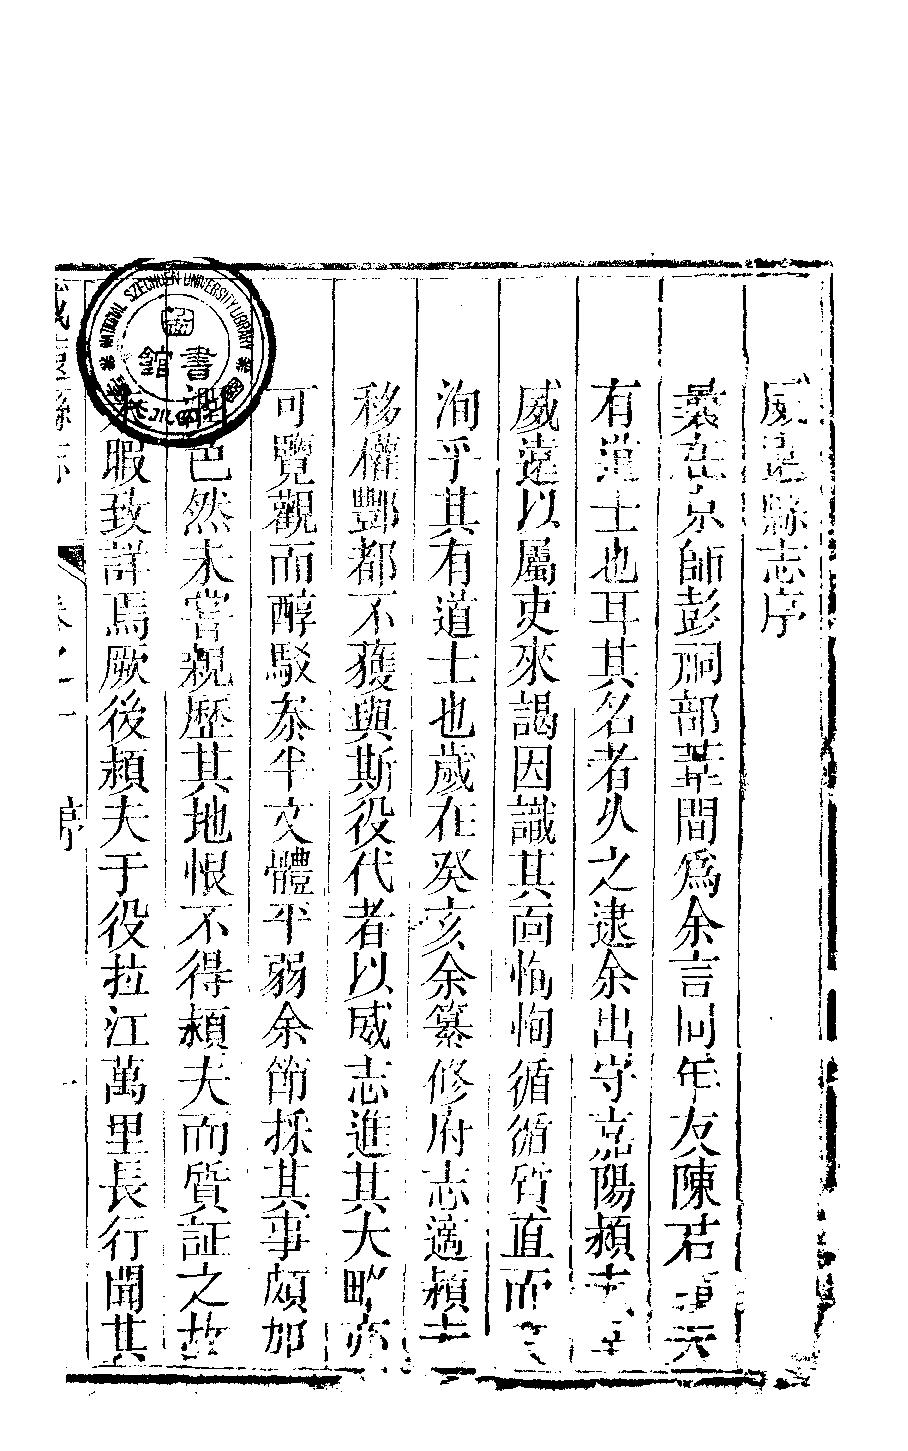 威遠縣志序
曩在京師彭嗣部莘間爲余言同年友陳君
有道士也耳其名者久之逮余出守嘉陽潁夫
威遠以屬吏來謁因識其面恂恂循循質直而
洵乎其有道士也歲在癸亥余纂修府志適潁夫
移權酆都不獲與斯役代者以威志進其大略亦
可覽觀而醇駁叅半文體平弱余節採其事頗加
潤色然未嘗親歷其地恨不得潁夫而質証之故
暇致詳焉厥後潁夫于役拉江萬里長行聞其
威遠縣志 卷之一 序 一
NATIONAL SZECHUEN UNIVERSITY LIBRARY
圖書館